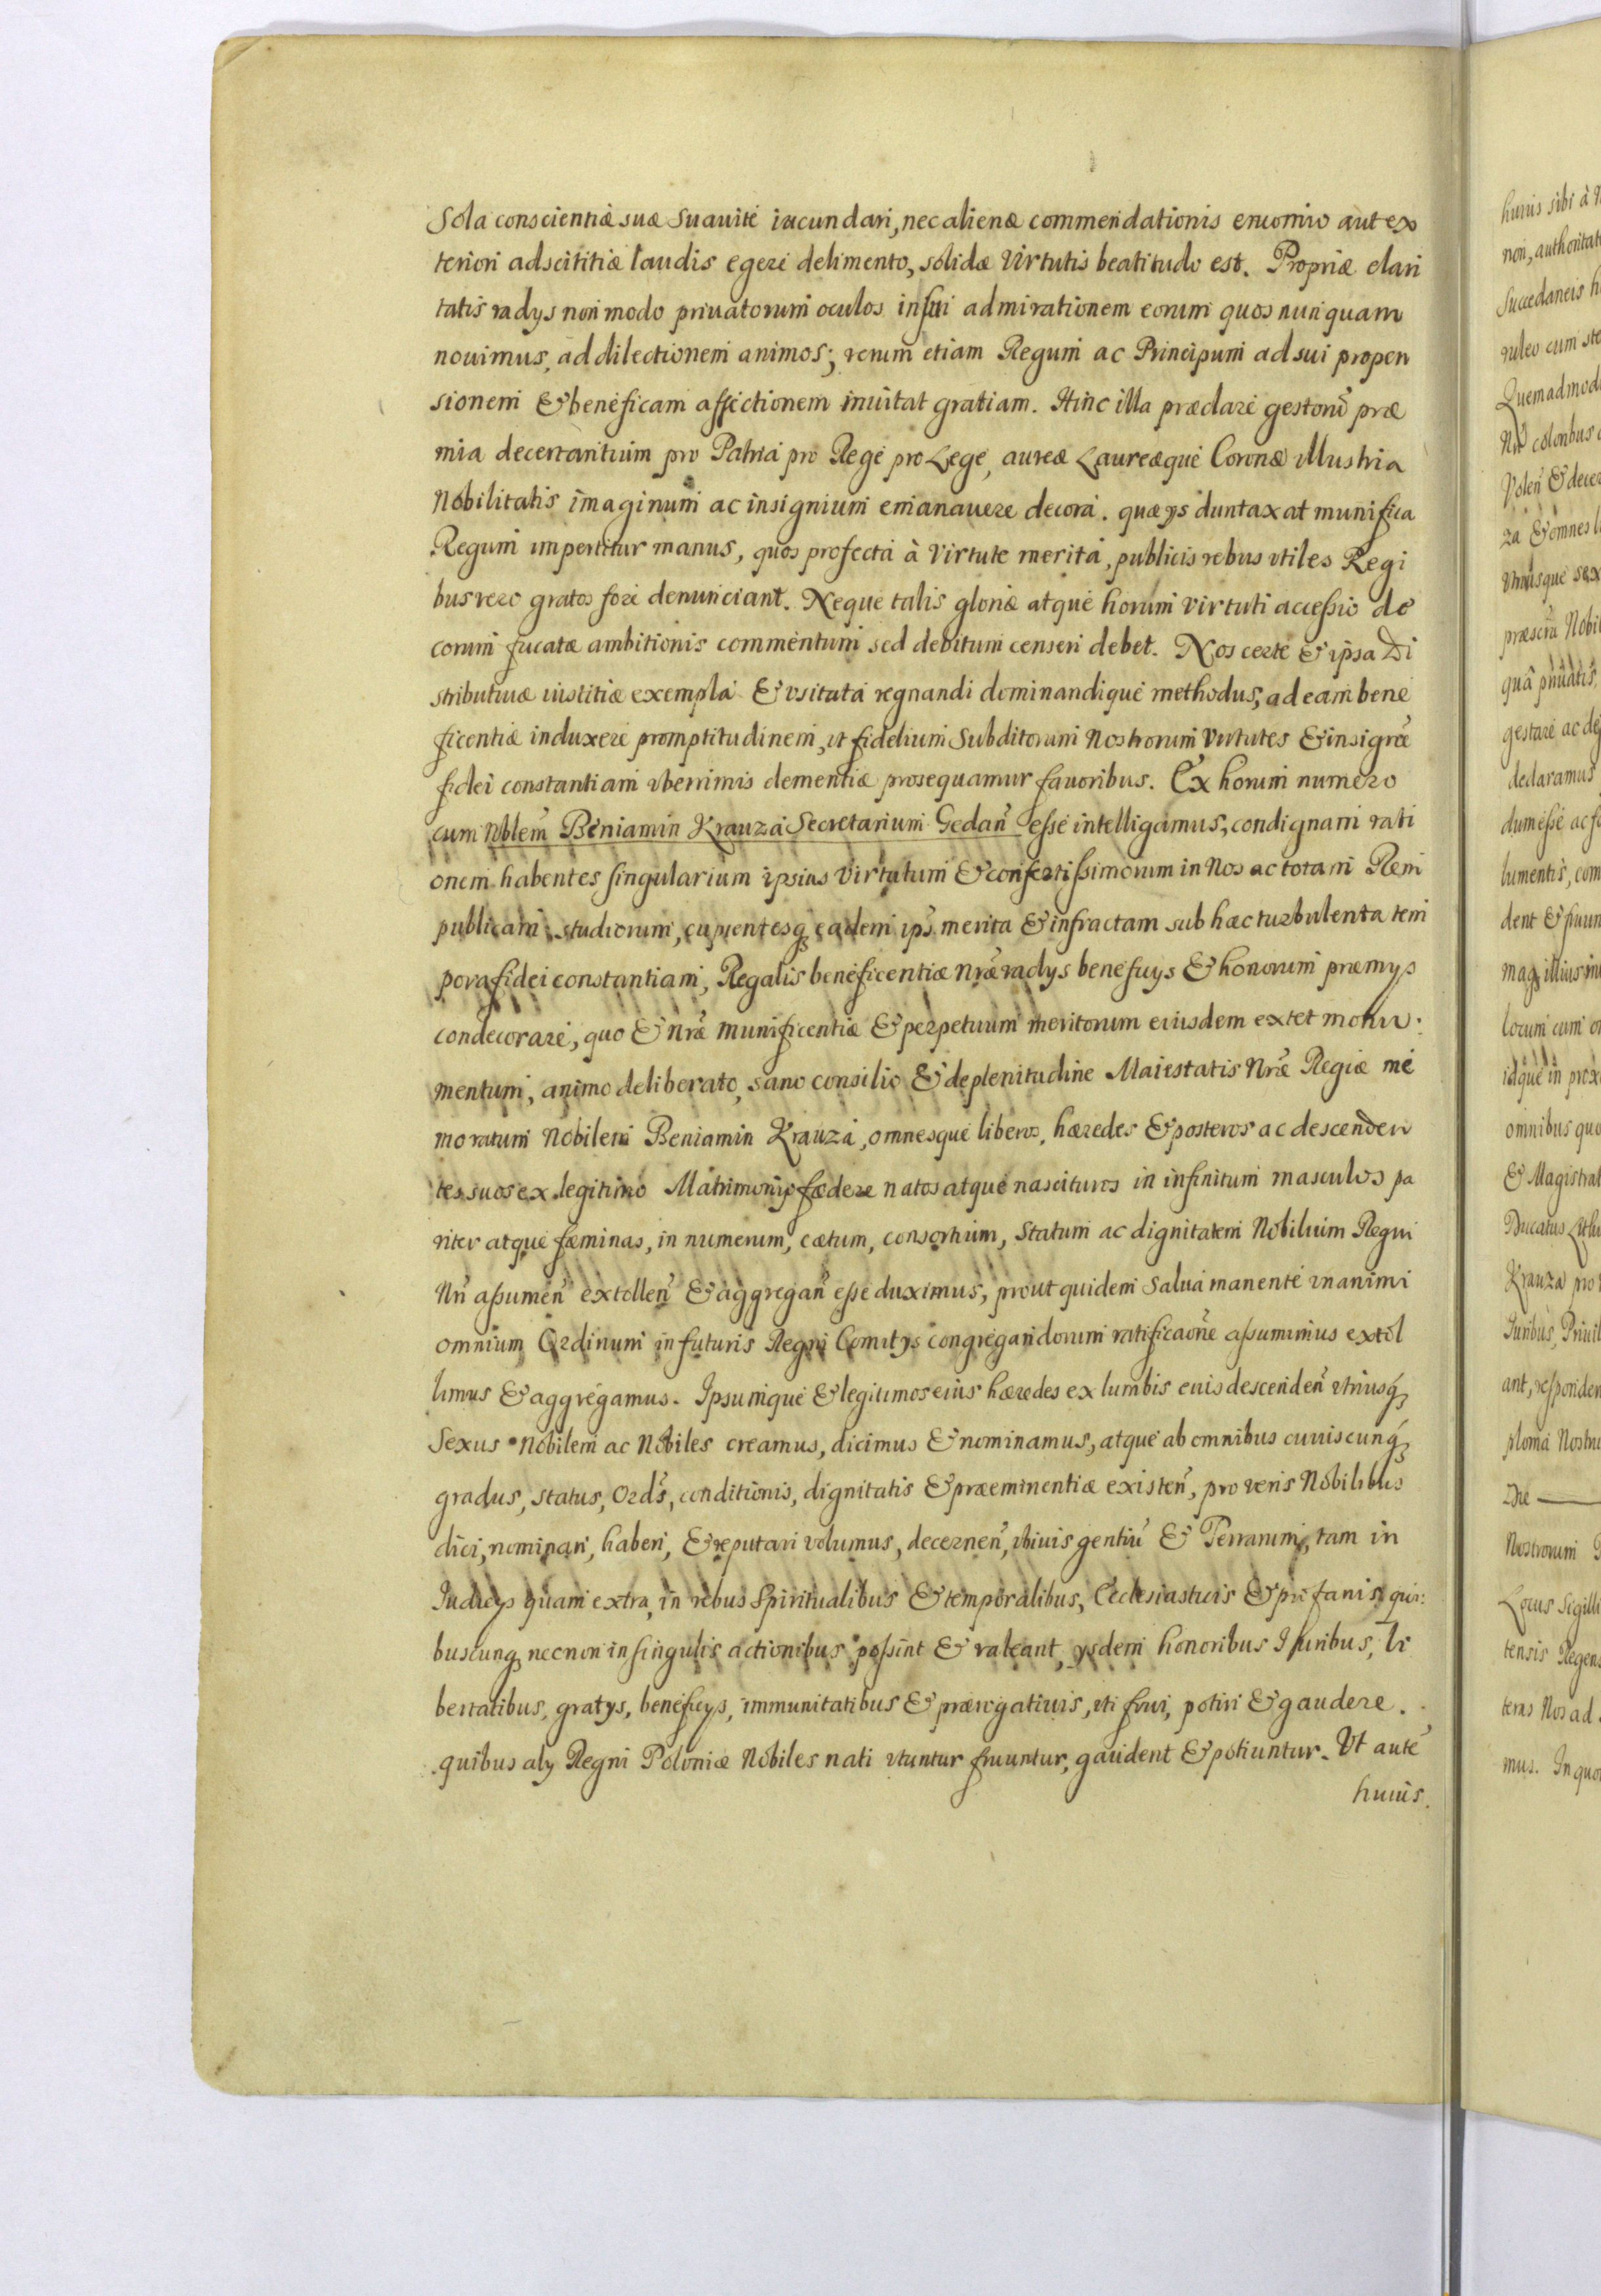 Sola conscientiæ suæ suauite iucundari, nec alienæ commendationis encomio aut ex
teriori adscititiæ laudis egere delimento, solidæ Virtutis beatitudo est. Propriæ clari
tatis radys non modo priuatorum oculos in sui admirationem eorum quos nunquam
nouimus, ad dilectionem animos; verum etiam Regum ac Principum ad sui propen
sionem & beneficam affectionem inuitat gratiam. Hinc illa præclare gestorũ præ
mia decertantium pro Patria pro Rege pro Lege, aureæ Laureæque Coronæ illustria
Nobilitatis imaginum ac insignium emanauere decora. quæ ys duntaxat munifica
Regum impertitur manus, quos profecta à Virtute merita, publicis rebus vtiles Regi
bus vero gratos fore denunciant. Neque talis gloriæ atque horum virtuti accessio de
corum fucatæ ambitionis commentum sed debitum censeri debet. Nos certe & ipsa Di
stributiuæ iustitiæ exempla & vsitata regnandi dominandique methodus, ad eam bene
ficentiæ induxere promptitudinem, vt fidelium Subditorum Nostrorum Virtutes & insignẽ
fidei constantiam vberrimis clementiæ prosequamur fauoribus. Ex horum numero
cum Nblem̃ Beniamin Krauza Secretarium Gedañ esse intelligamus, condignam rati
onem habentes singularium ipsius Virtutum & confertissimorum in Nos ac totam Rem
publicam studiorum, cupientesq̃ eadem ips̃ merita & infractam sub hæc turbulenta tem
pora fidei constantiam, Regalis beneficentiæ Nr̃æ radys beneficys & honorum præmys
condecorare, quo & nr̃æ munificentiæ & perpetuum meritorum eiusdem extet monu:
mentum, animo deliberato, sano consilio & de plenitudine Maiestatis Nr̃æ Regiæ me
moratum Nobilem Beniamin Krauza, omnesque liberos, hæredes & posteros ac descenden
tes suos ex legitimo Matrimony fœdere natos atque nascituros in infinitum masculos pa
riter atque fœminas, in numerum, cœtum, consortium, statum ac dignitatem Nobilium Regni
Nrĩ assumeñ extolleñ & aggregañ esse duximus, prout quidem salua manente vnanimi
omnium Ordinum in futuris Regni Comitys congregandorum ratificaõne assumimus extol
limus & aggregamus. Ipsumque & legitimos eius hæredes ex lumbis euis descendeñ vtriusq̃
Sexus Nobilem ac Nobiles creamus, dicimus & nominamus, atque ab omnibus cuiuscunq̃
gradus, status, Ords̃, conditionis, dignitatis & præeminentiæ existeñ, pro veris Nobilibus
dici, nominari, haberi, & reputari volumus, decerneñ, vbiuis gentiũ & Terrarum, tam in
Iudicys quam extra, in rebus Spiritualibus & temporalibus, Ecclesiasticis & profanis, qui:
buscunq̃ necnon in singulis actionibus possint & valeant, ysdem honoribus Iuribus, li
bertatibus, gratys, beneficys, immunitatibus & prærogatiuis, vti frui, potiri & gaudere.
quibus aly Regni Poloniæ Nobiles nati vtuntur fruuntur, gaudent & potiuntur. Vt autẽ
huius.
huius sibi à
non, authoritat
Succedaneis h
ruleo cum ste
Quemadmod
coloribus
Voleñ & decer
za & omnes l
Vtriusque sex
Nobi
quâ priuatis,
gestare ac de
declaramus
dum esse ac
lumentis, com
dent & fruun
magq̃ illius
locum cum o
idque in prox
omnibus quo
& Magistrat
Ducatus Lithu
Krauza pro
Iuribus, Priuil
ant, responden
ploma Nostru
Die
Nostrorum
Locus Sigilli
tensis Regens
teras Nos ad
mus. In quo